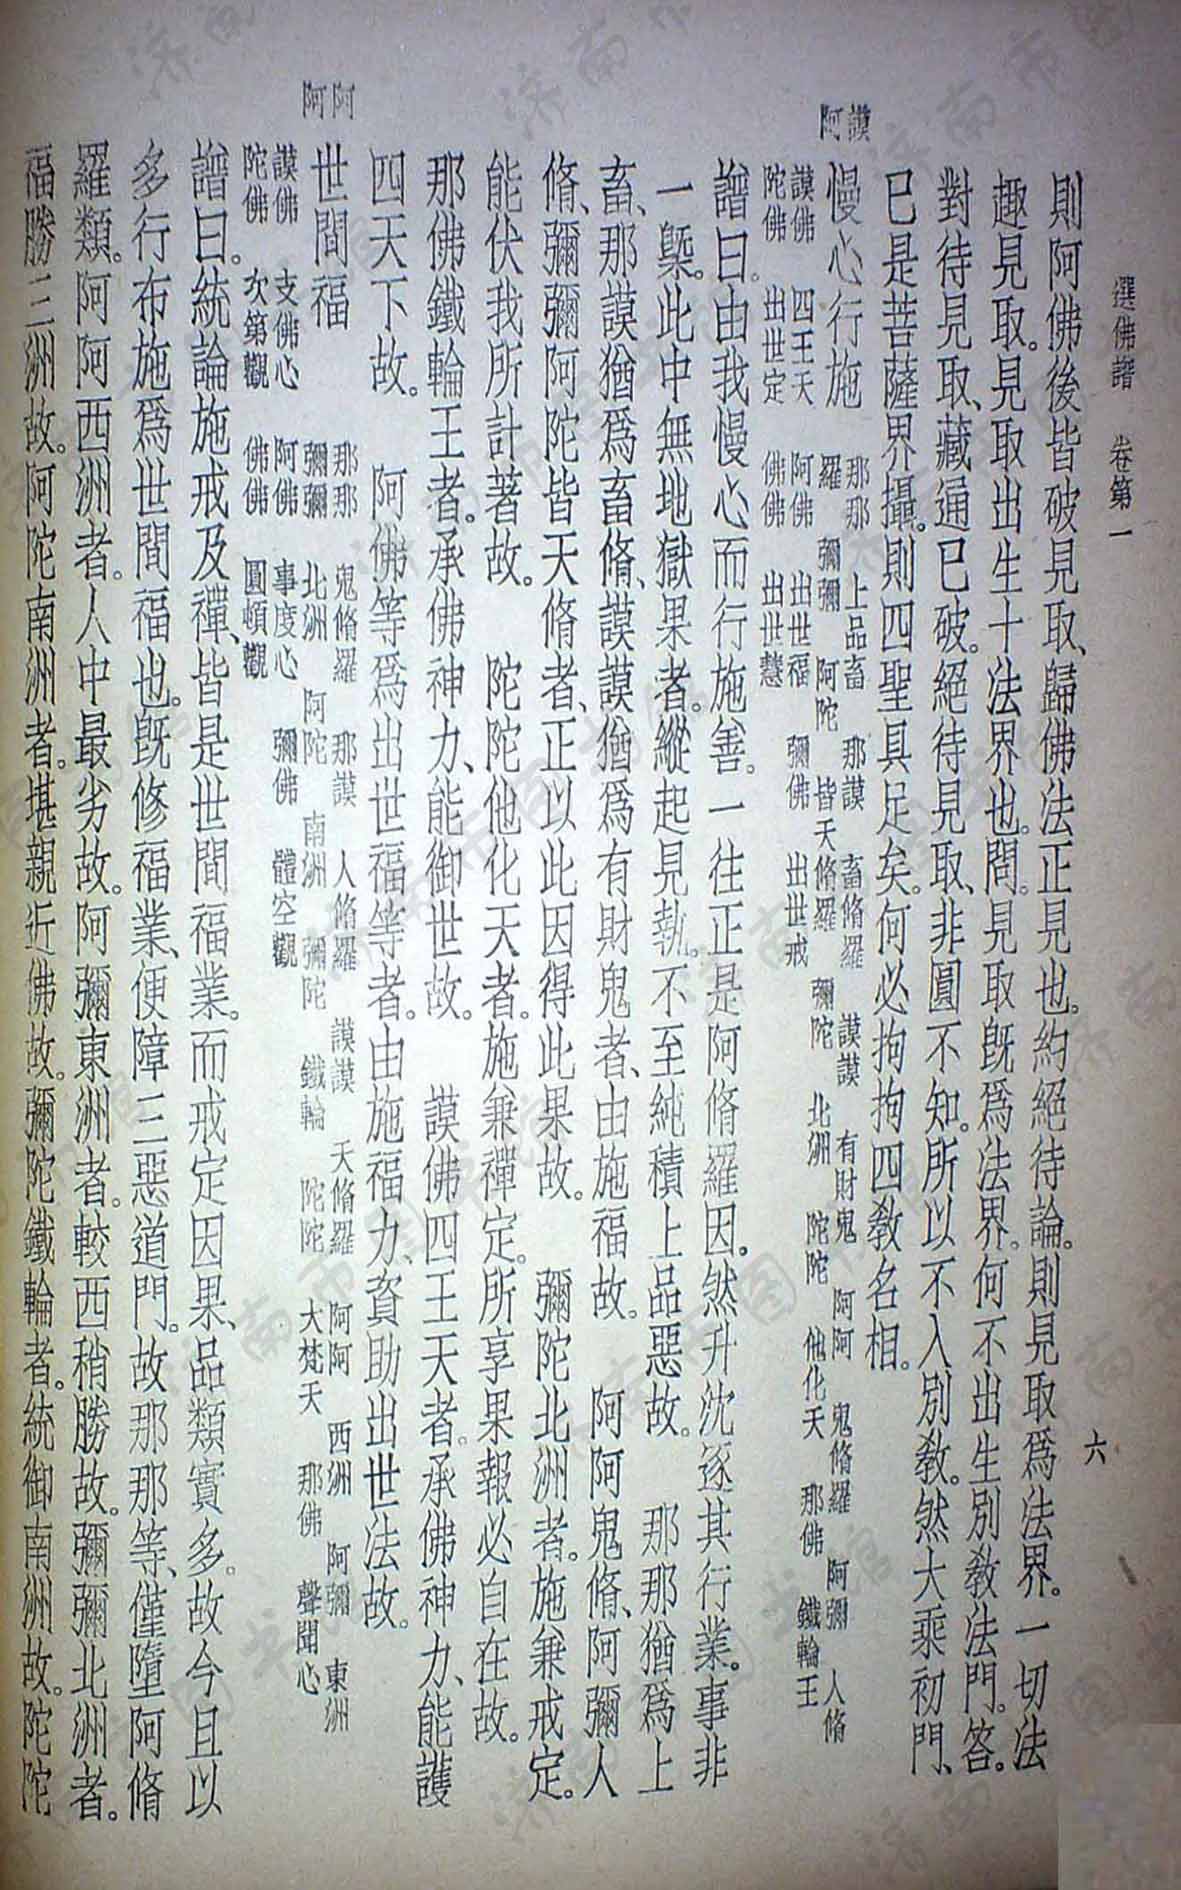 選佛譜 卷第一 六
則阿佛後皆破見取、歸佛法正見也。約絕待論。則見取爲法界。一切法
趣見取。見取出生十法界也。問。見取旣爲法界。何不出生別敎法門。答。
對待見取、藏通已破。絕待見取、非圓不知。所以不入別敎。然大乘初門、
已是菩薩界攝。則四聖具足矣。何必拘拘四敎名相。
謨阿 慢心行施 那那 上品畜 那謨 畜脩羅 謨謨 有財鬼 阿阿 鬼脩羅 阿彌 人脩
羅 彌彌 阿陀 皆天脩羅 彌陀 北洲 陀陀 他化天 那佛 鐵輪王
謨佛 四王天 阿佛 出世福 彌佛 出世戒
陀佛 出世定 佛佛 出世慧
譜曰。由我慢心而行施善。一往正是阿脩羅因。然升沈逐其行業。事非
一槩。此中無地獄果者。縱起見執。不至純積上品惡故。 那那猶爲上
畜、那謨猶爲畜脩、謨謨猶爲有財鬼者、由施福故。 阿阿鬼脩、阿彌人
脩、彌彌阿陀皆天脩者、正以此因得此果故。 彌陀北洲者。施兼戒定。
能伏我所計著故。 陀陀他化天者。施兼禪定。所享果報必自在故。
那佛鐵輪王者。承佛神力、能御世故。 謨佛四王天者。承佛神力、能護
四天下故。 阿佛等爲出世福等者。由施福力、資助出世法故。
阿阿 世間福 那那 鬼脩羅 那謨 人脩羅 謨謨 天脩羅 阿阿 西洲 阿彌 東洲
彌彌 北洲 阿陀 南洲 彌陀 鐵輪 陀陀 大梵天 那佛 聲聞心
謨佛 支佛心 阿佛 事度心 彌佛 體空觀
陀佛 次第觀 佛佛 圓頓觀
譜曰。統論施戒及禪、皆是世間福業。而戒定因果、品類實多。故今且以
多行布施爲世間福也。旣修福業、便障三惡道門。故那那等、僅墮阿脩
羅類。阿阿西洲者。人中最劣故。阿彌東洲者。較西稍勝故。彌彌北洲者。
福勝三洲故。阿陀南洲者。堪親近佛故。彌陀鐵輪者。統御南洲故。陀陀